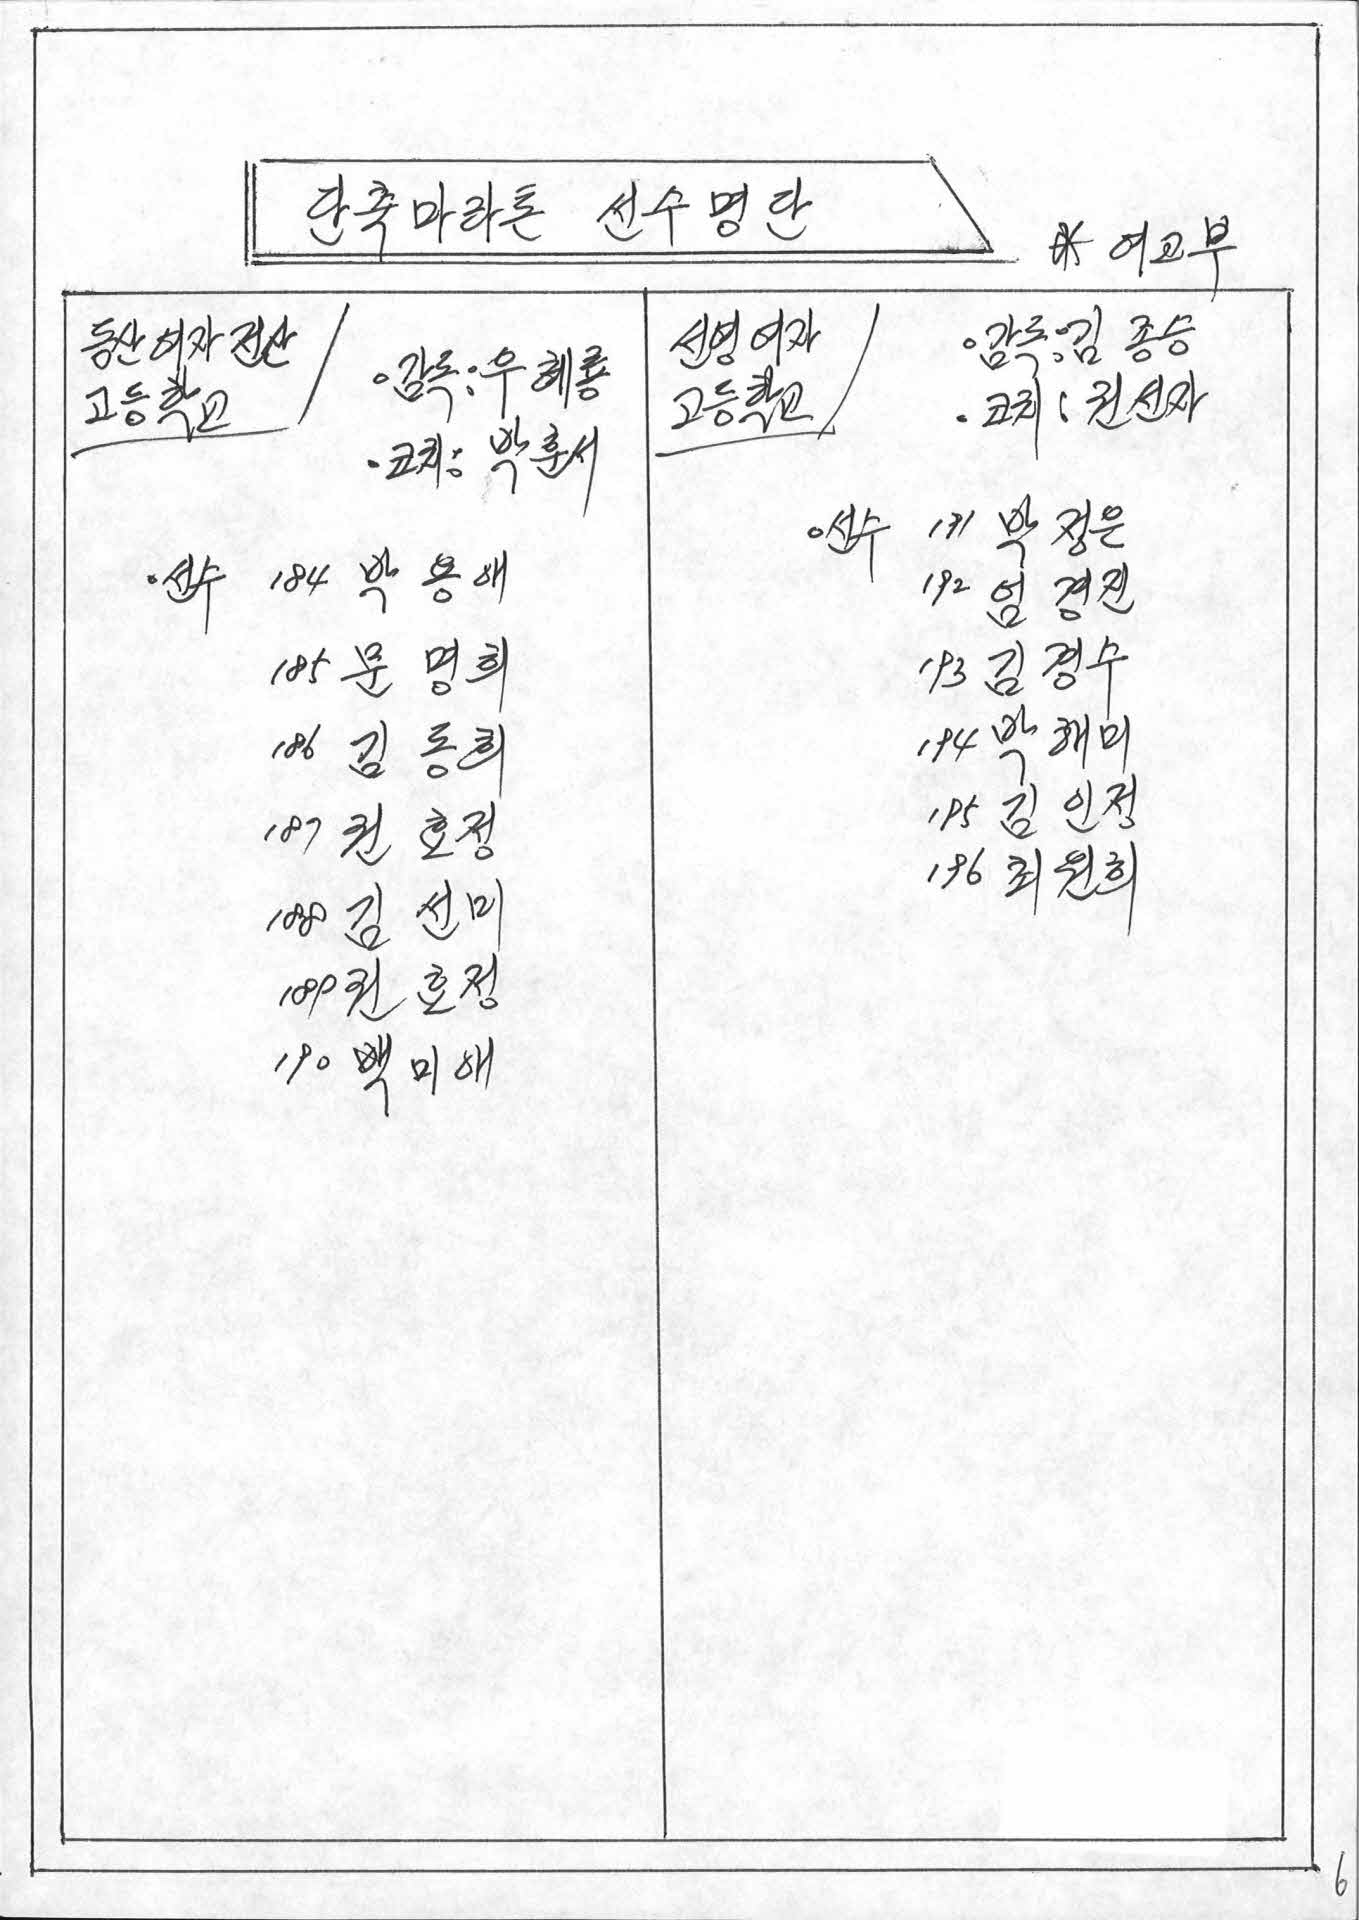 단축마라톤 선수명단
※ 여고부
동산여자전산
고등학교
·감독:우혜룡
·코치:박훈서
·선수 184 박용애
185 문명희
186 김동희
187 권효정
188 김선미
189 권효정
190 백미애
선영여자
고등학교
·감독:김종승
·코치:권선자
·선수 191 박정은
192 엄경진
193 김경수
194 박해미
195 김인정
196 최원희
6